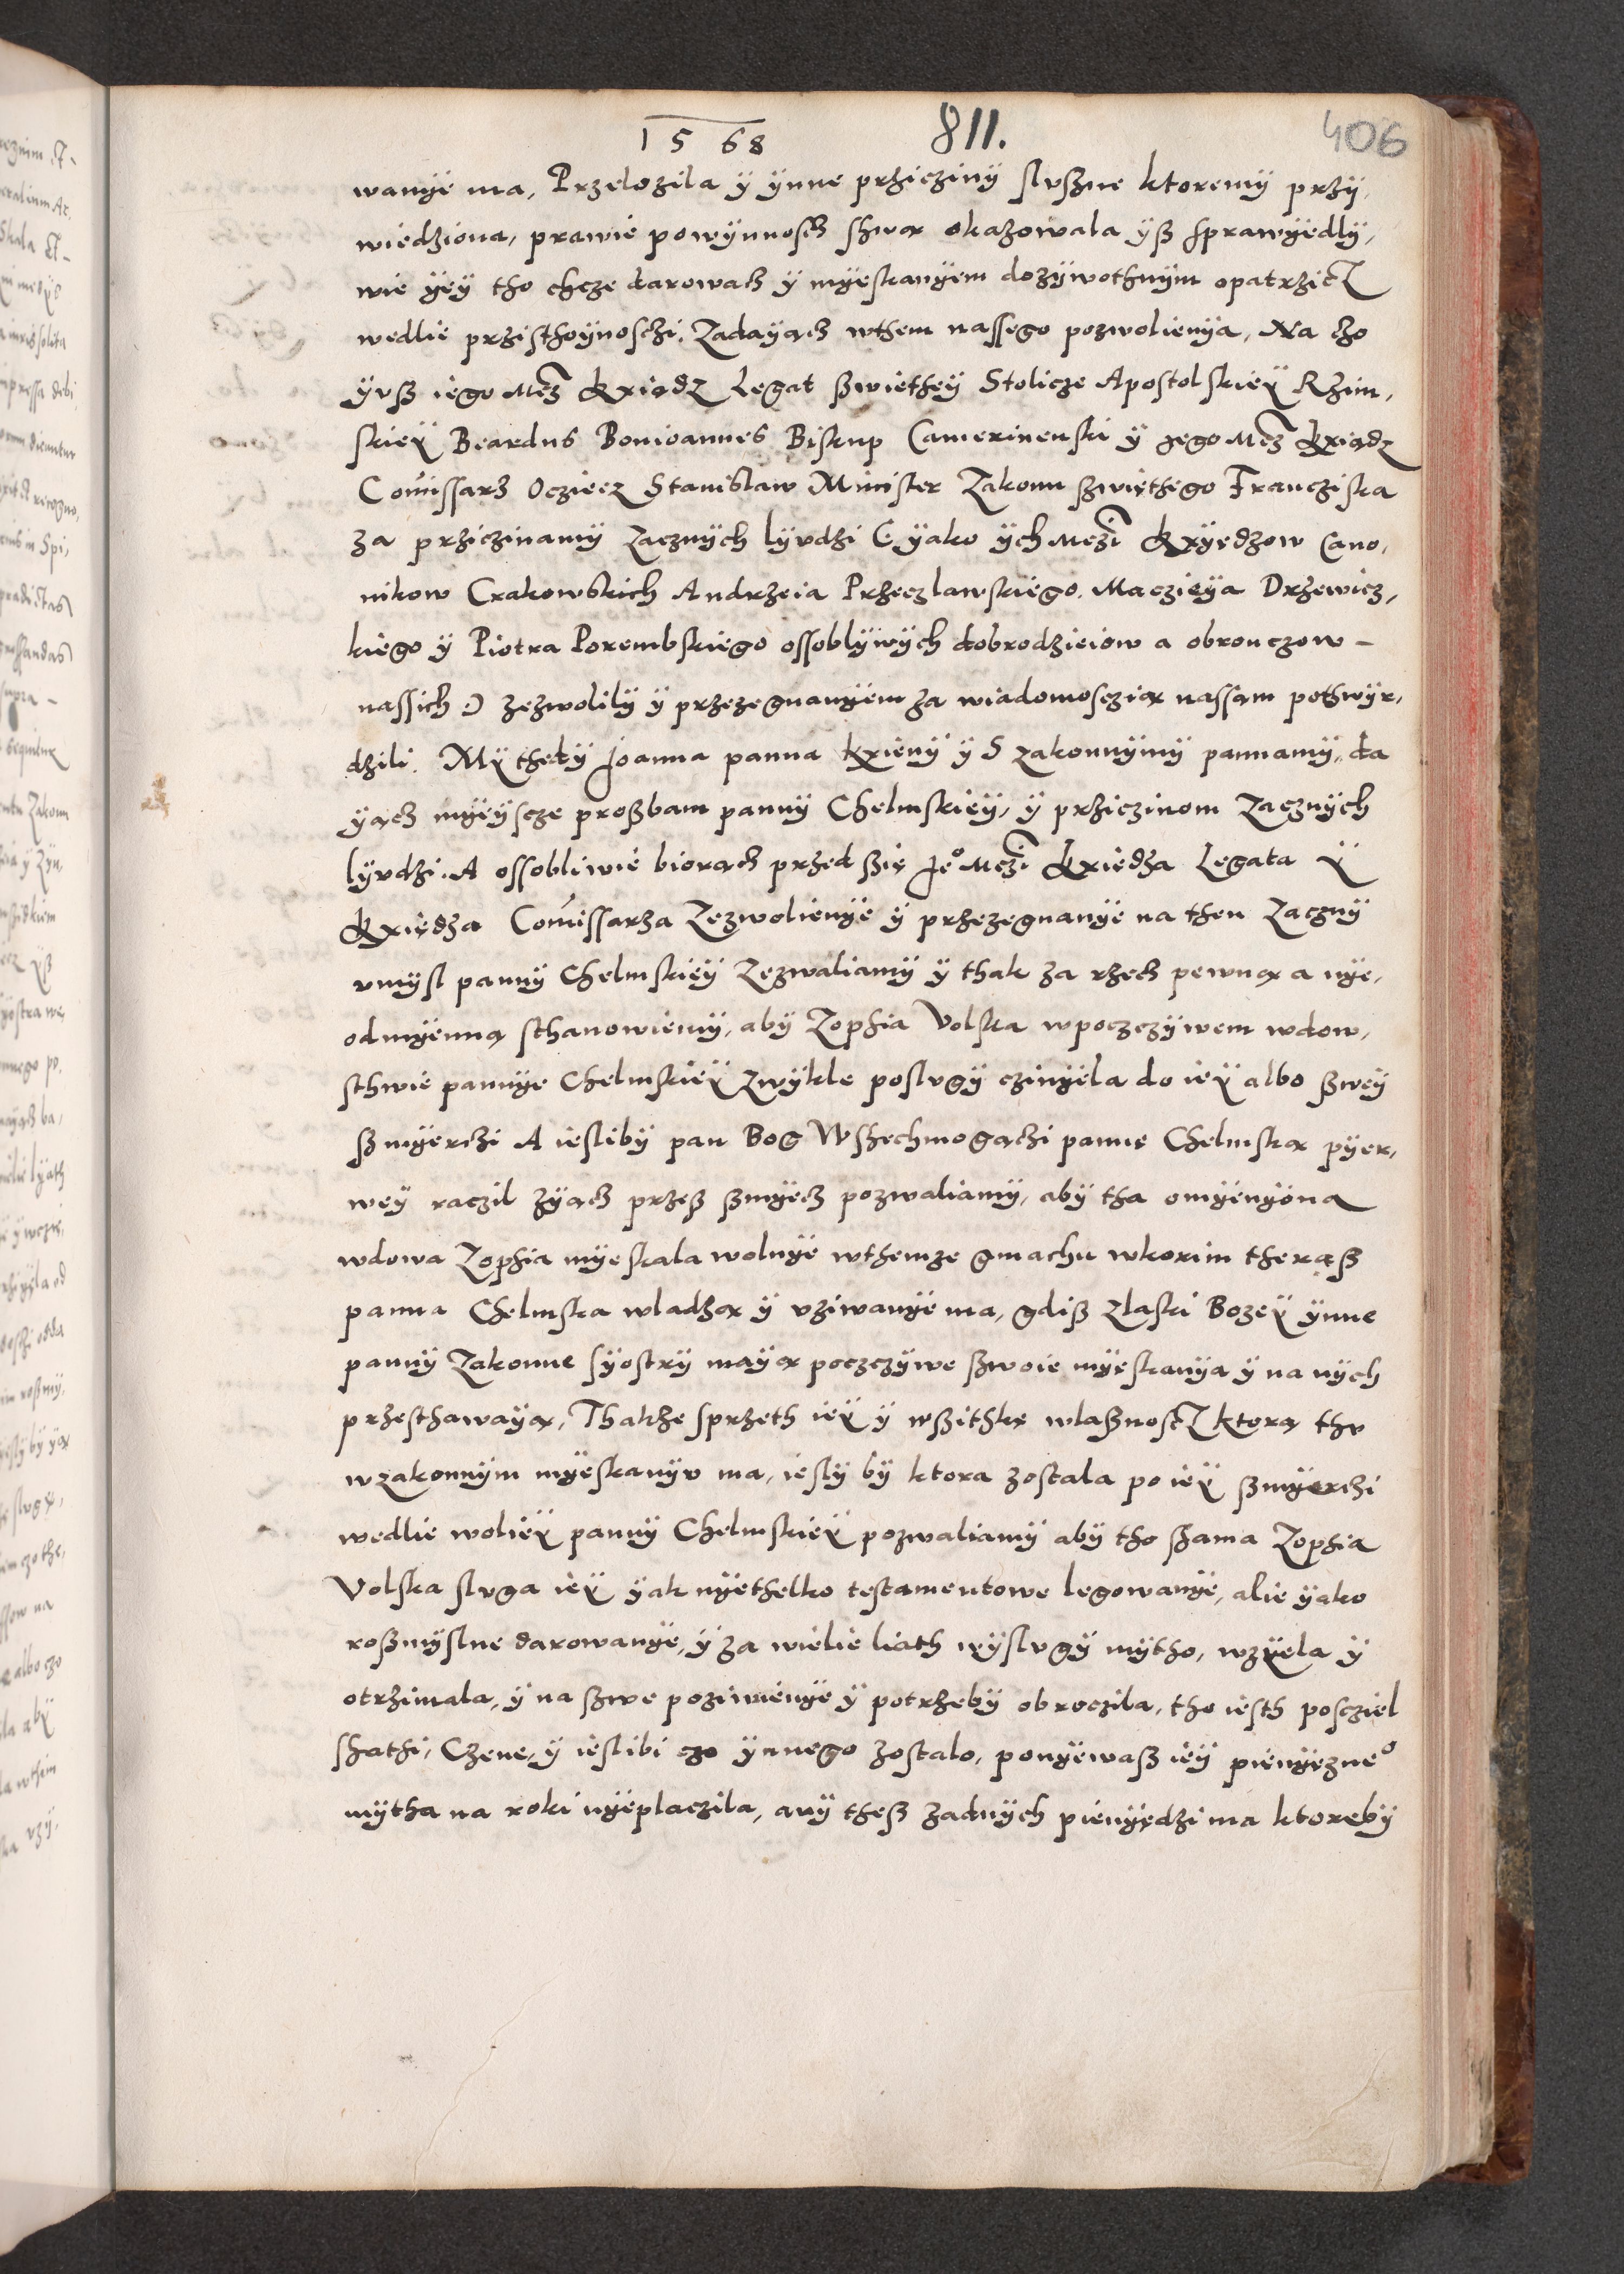 1568 811. 406
wanÿe ma, Przelozila ÿ ÿnne prziczinÿ slvszne ktoremÿ przÿ,
wiedziona, prawie powÿnnoscz szwą okazowala ÿsz sprawÿedlÿ,
wie ÿeÿ tho chcze darowacz ÿ mÿeskanÿem dozÿwothnÿm opatrzicz
wedlie prziſthoÿnoſczi. Zadayącz wthem naſſego pozwolienÿa, Na czo
ÿvsz iego Mcz Kxiądz Legat szwiętheÿ Stolicze Apostolskieÿ Rzim,
skieÿ Beardus Bonioannes Biskup Camerinenski ÿ Jego Mcz Kxiądz
Comissarz Ocziecz Stanislaw Minister Zakonu szwięthego Franciszka
za prziczinamÿ Zacznÿch lÿvdzi (: ÿako ÿch Mczi Kxÿędzow Cano,
nikow Crakowskich Andrzeia Przeczlawskiego. Macziеÿa Drzewicz,
kiego ÿ Piotra Porembskiego oſſoblÿwÿch dobrodzieiow a obronczow –
naſſich :) zezwolilÿ ÿ przezegnanÿem za wiadomosczią naſſąm pothwÿr,
dzili. Mÿ thedÿ Joanna panna Kxienÿ ÿ S zakonnÿmÿ pannamÿ, da
ÿącz mÿeÿscze proszbam pannÿ Chelmskieÿ, ÿ prziczinom Zacznÿch
lÿvdzi. A oſſobliwie biorącz przed szię Je° Mczi Kxiedza Legata ÿ
Kxiędza Comissarza Zezwolienÿe ÿ przezegnanÿe na then Zacznÿ
vmÿsl pannÿ Chelmskieÿ Zezwaliamÿ ÿ thak za rzecz pewną a nÿe,
odmÿenną sthanowiemÿ, abÿ Zophia Volska wpoczczÿwem wdow,
sthwie pannÿe Chelmskieÿ zwÿkle poslvgÿ czinÿela do ieÿ albo szweÿ
szmÿerczi A iesliby pan Bog Wszechmogączi pannę Chelmską pÿer,
weÿ raczil zÿącz przesz szmÿecz pozwaliamÿ, abÿ tha omÿenÿona
wdowa Zophia mÿeskala wolnÿe wthemze gmachu wkorim therąsz
panna Chelmska wladzą ÿ vziwanÿe ma, gdisz zlaski Bozeÿ ÿnne
pannÿ Zakonne sÿostrÿ maÿą poczczÿwe szwoie mÿeskanÿa ÿ na nÿch
przesthawaÿą, Thakze sprzeth ieÿ ÿ wszithkę wlasznoscz ktorą thv
wzakonnÿm mÿeskanÿv ma, ieslÿ bÿ ktora zostala po ieÿ szmÿerczi
wedlie wolieÿ pannÿ Chelmskieÿ pozwaliamÿ abÿ tho szama Zophia
Volska slvga ieÿ ÿak nÿethelko testamentowe legowanÿe, alie ÿako
roszmÿslne darowanÿe, ÿ za wielie liath wÿslvgÿ mÿtho, wzÿela ÿ
otrzimala, ÿ na szwe poziwienÿe ÿ potrzebÿ obroczila, tho iesth posciel
szathi, Czene, ÿ ieslibi czo ÿnnego zostalo, ponÿewasz ieÿ pienÿezne°
mÿtha na roki nÿeplaczila, anÿ thesz zadnÿch pienÿędzi ma ktorebÿ